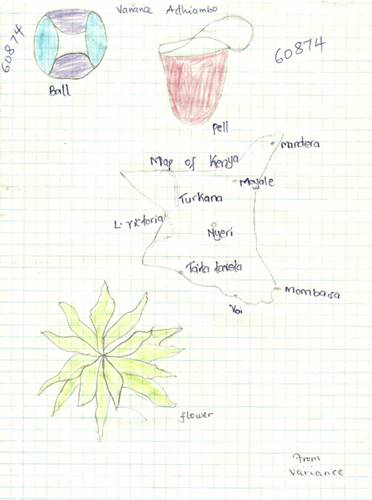 Variance Adhiambo
60874
60874
Ball
Pell
Map of Kenya
Mandera
Moyale
Turkana
L. victoria
Nyeri
Taita taveta
Mombasa
Voi
flower
From
Variance